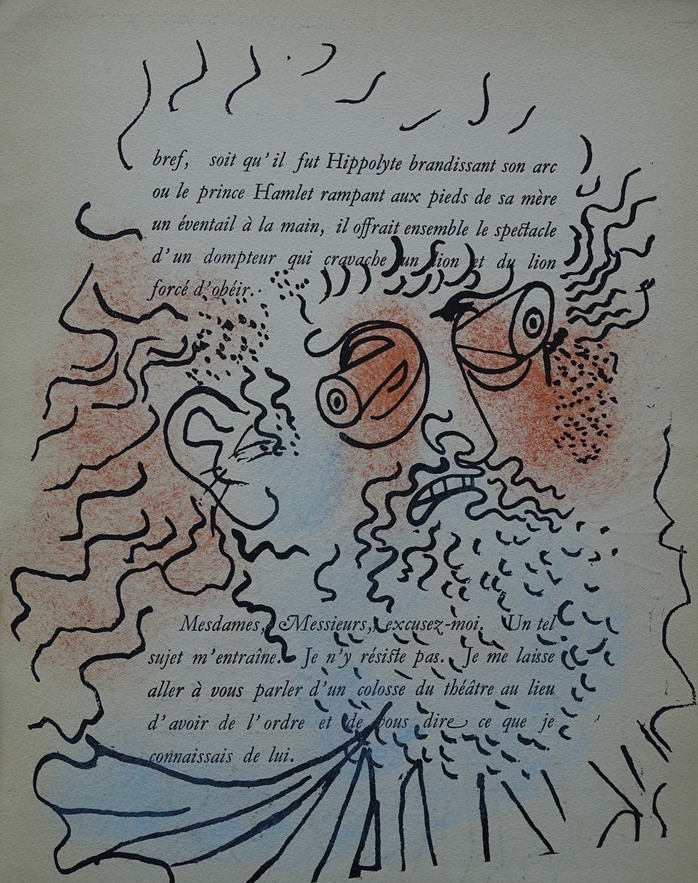 bref, soit qu'il fut Hippolyte brandissant son arc
ou le prince Hamlet rampant aux pieds de sa mère
un éventail à la main, il offrait ensemble le spectacle
d'un dompteur qui cravache un lion et du lion
forcé d'obéir.
Mesdames, Messieurs, excusez-moi. Un tel
sujet m'entraîne. Je n'y résiste pas. Je me laisse
aller à vous parler d'un colosse du théâtre au lieu
d'avoir de l'ordre et de vous dire ce que je
connaissais de lui.